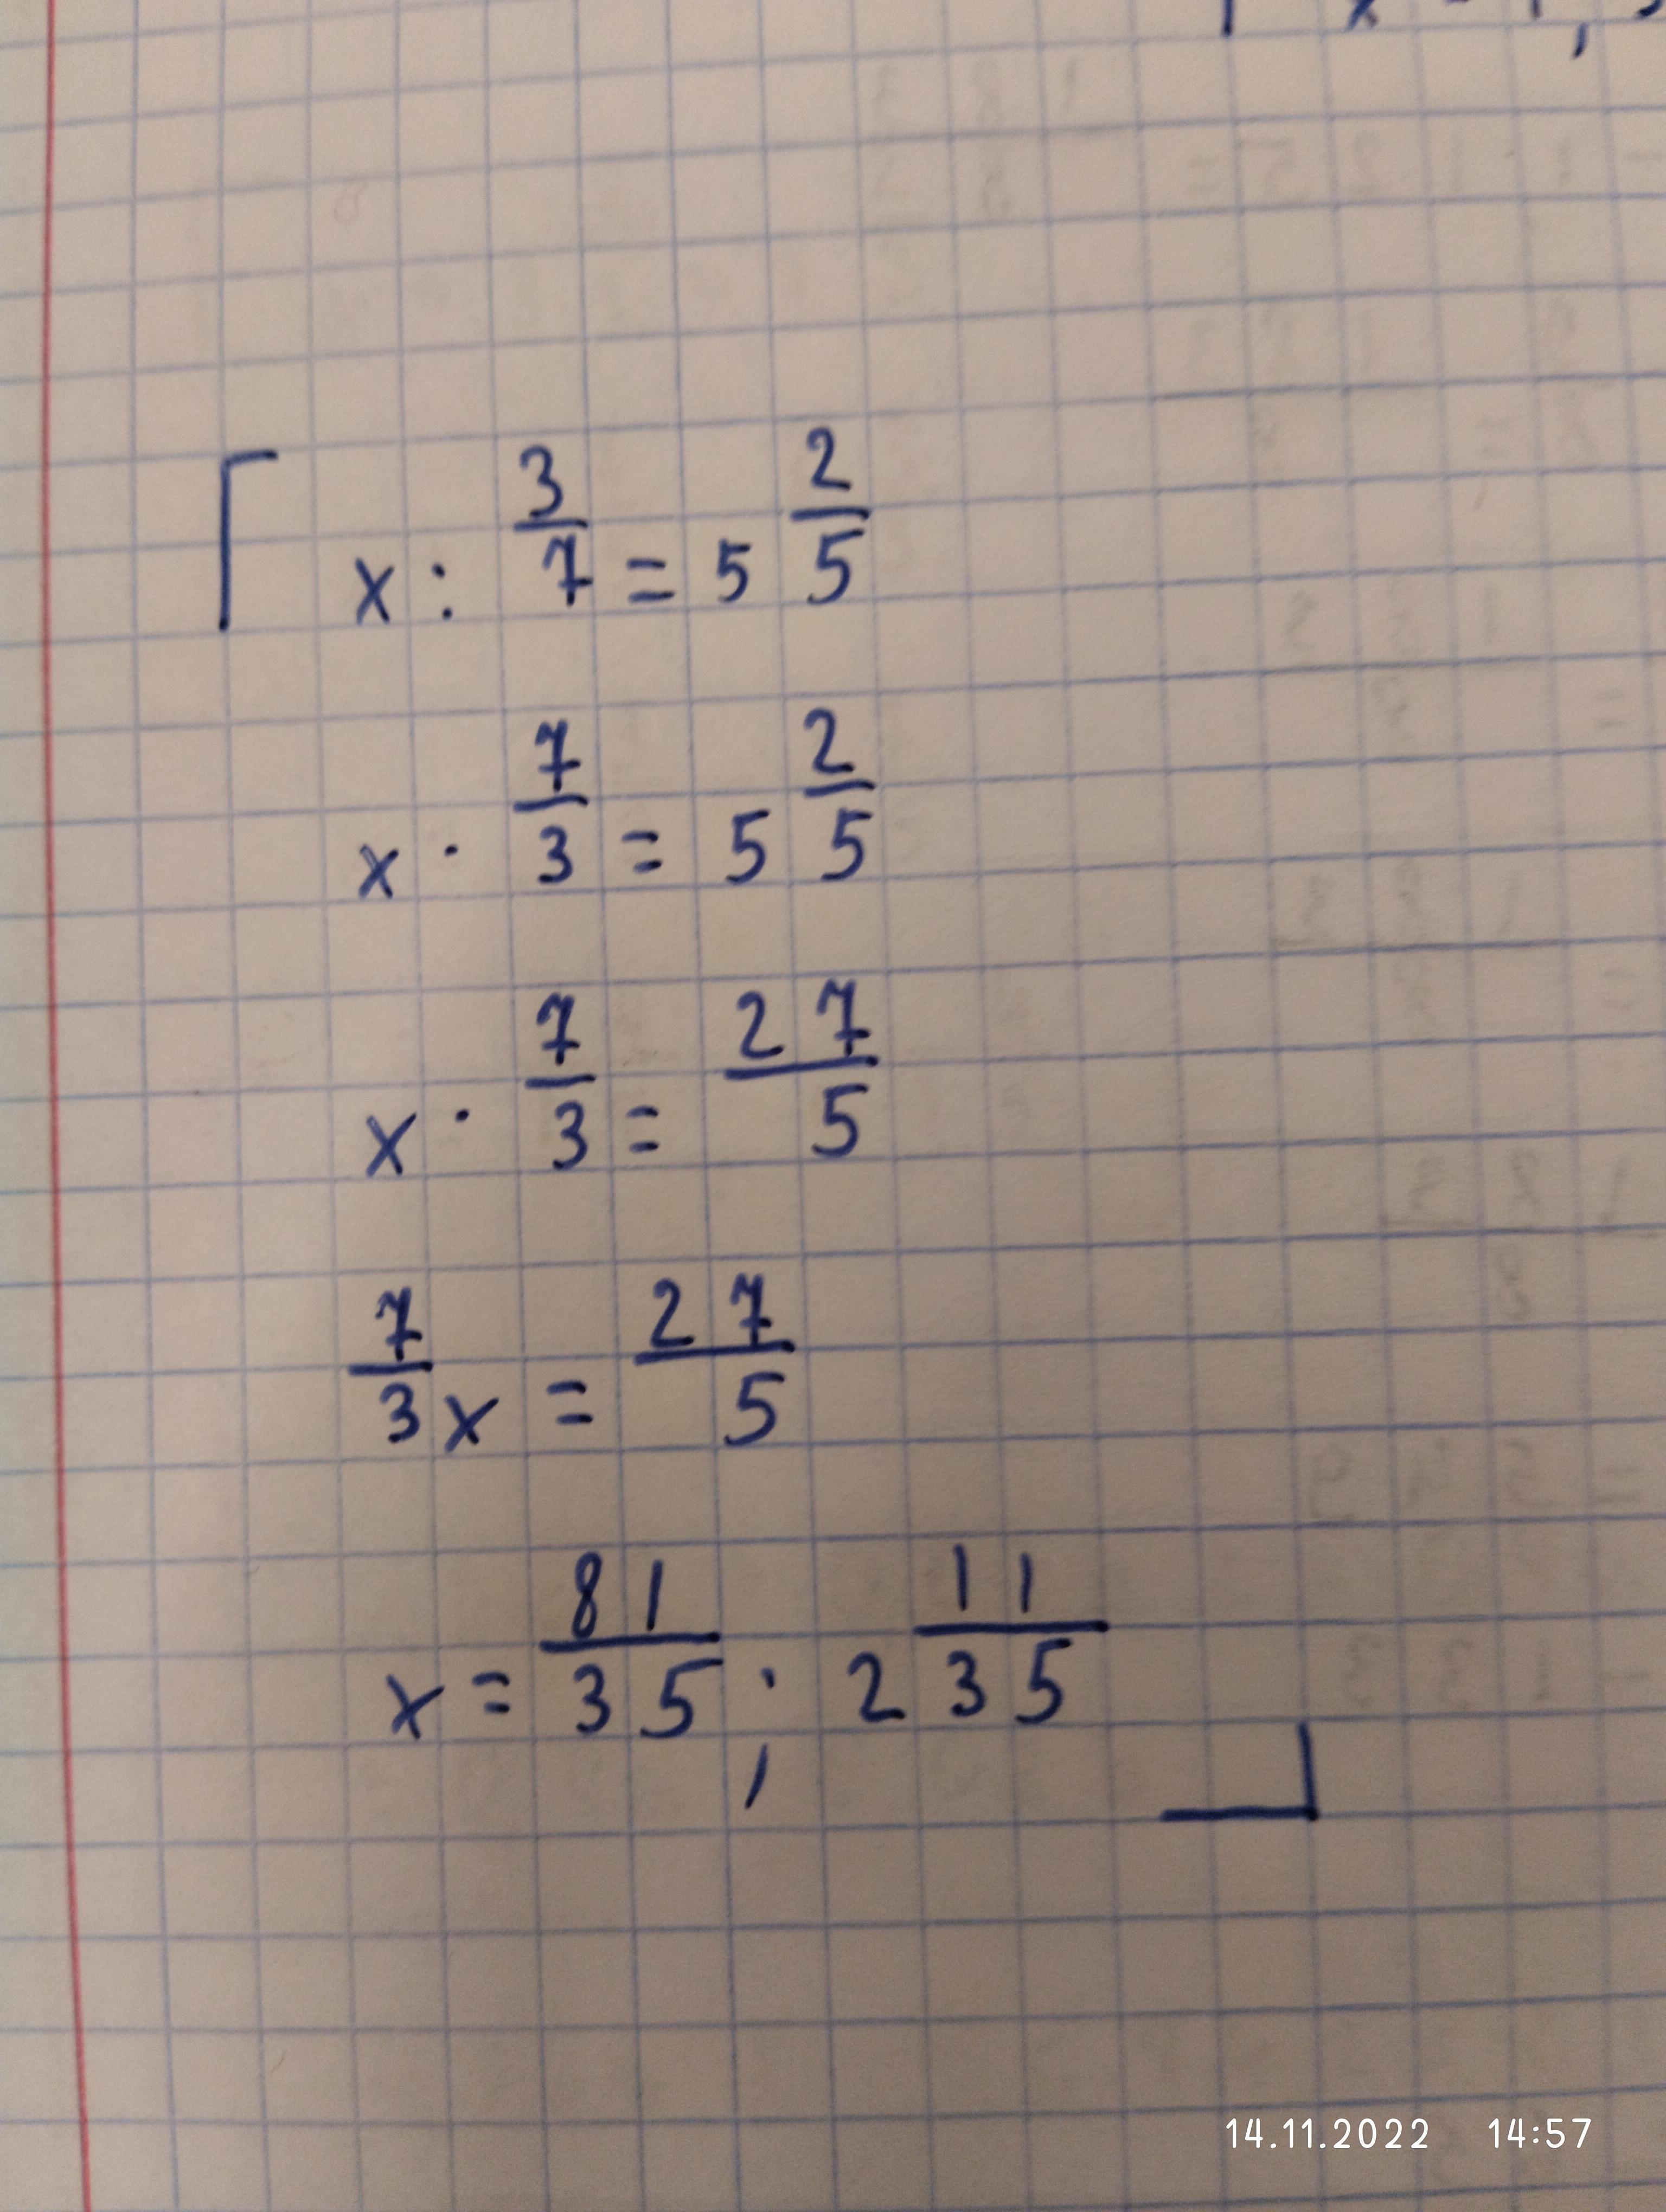 x : 3/7 = 5 2/5
x · 7/3 = 5 2/5
x · 7/3 = 27/5
7/3 x = 27/5
x = 81/35 ; 2 11/35
14.11.2022 14:57